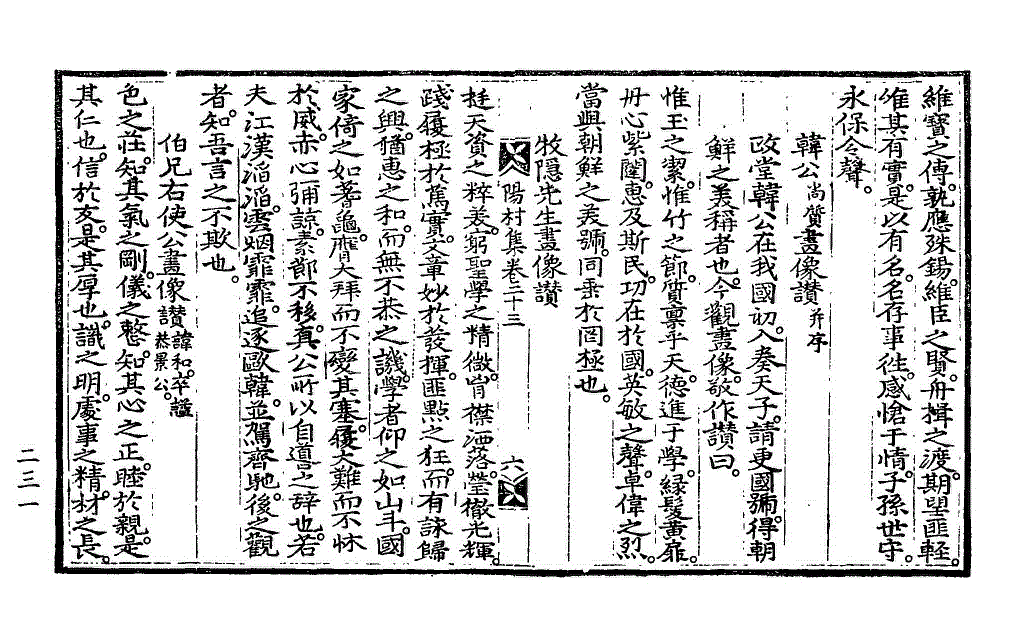 維寶之傳。孰應殊錫。維臣之賢。舟楫之渡。期望匪輕。
惟其有實。是以有名。名存事徃。感愴于情。子孫世守。
永保令聲。
韓公尚質畫像讃并序
政堂韓公在我國初。入奏天子。請更國號。得朝
鮮之美稱者也。今觀畫像。敬作讃曰。
惟玉之潔。惟竹之節。質稟乎天。德進于學。緑髮黃扉。
丹心紫闥。惠及斯民。功在於國。英敏之聲。卓偉之烈。
當與朝鮮之美號。同垂於罔極也。
牧隱先生畫像讃
陽村集卷二十三
六
挺天資之粹美。窮聖學之精微。胷襟洒落。瑩徹光輝。
踐履極於篤實。文章妙於發揮。匪點之狂。而有詠歸
之興。猶惠之和。而無不恭之譏。學者仰之如山斗。國
家倚之如蓍龜。膺大拜而不變其塞。履大難而不怵
於威。赤心彌諒。素節不移。眞公所以自噵之辞也。若
夫江漢滔滔。雲烟霏霏。追逐歐韓。並駕齊馳。後之觀
者。知吾言之不欺也。
伯兄右使公畫像讃諱和。卒諡恭景公。
色之莊。知其氣之剛。儀之整。知其心之正。睦於親。是
其仁也。信於友。是其厚也。識之明。處事之精。材之長。
二三一